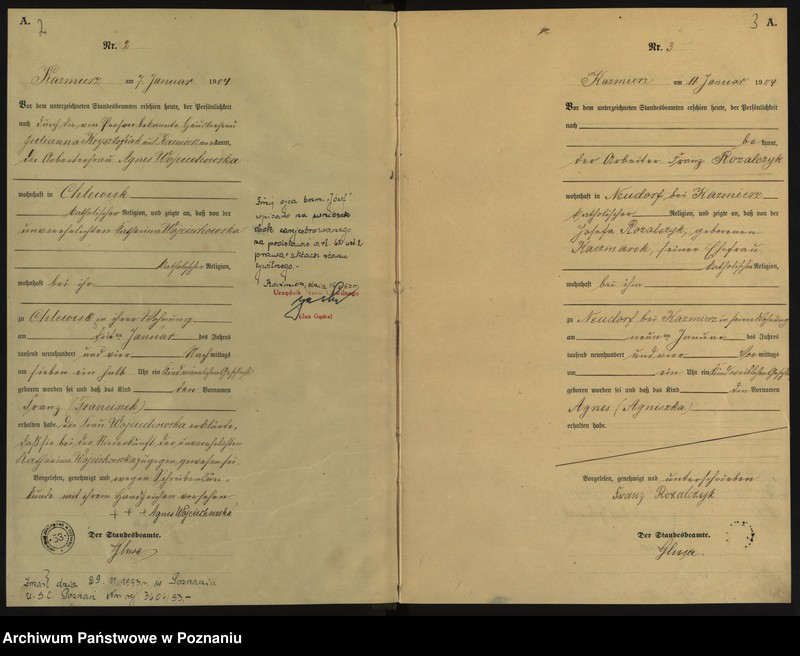 A.
2
Nr. 2
Kazmierz am 7. Januar 1904
Vor dem unterzeichneten Standesbeamten erschien heute, der Persönlichkeit
nach durch die von Person bekannte Häuslerfrau
Julianna Krysztofiak aus Kazmierz kannt,
die Arbeiterfrau Agnes Wojciechowska
wohnhaft in Chlewisk
katholischer Religion, und zeigte an, daß von der
unverehelichten Katharina Wojciechowska
katholischer Religion,
wohnhaft bei ihr
zu Chlewisk in ihrer Wohnung
am Januar des Jahres
tausend neunhundert und vier Nachmittags
um sieben ein halb Uhr ein Kind männlichen Geschlechts
geboren worden sei und daß das Kind den Vornamen
Franz (Franciszek)
erhalten habe. Die Frau Wojciechowska erklärte,
daß sie bei der Niederkunft der unverehelichten
Katharina Wojciechowska zugegen gewesen sei
Vorgelesen, genehmigt und wegen Schreibensun-
kunde mit ihrem Handzeichen versehen
+ + + Agnes Wojciechowska
Der Standesbeamte.
Glusa
53
Zmarł dnia 29. 11. 1953 r. w Poznaniu
U.S.C. Poznań Nr 3604/53,-
Imię ojca
wpisano na wniosek
zarejestrowanego
na podstawie art. ust. 2
prawa o aktach stanu
cywilnego.-
Kaźmierz, dnia
Urzędnik Stanu Cywilnego
(Jan Gąska)
3 A.
Nr. 3
Kazmierz am 11. Januar 1904
Vor dem unterzeichneten Standesbeamten erschien heute, der Persönlichkeit
nach
be kannt,
der Arbeiter Franz Rozalczyk
wohnhaft in Neudorf bei Kazmierz
katholischer Religion, und zeigte an, daß von der
Josefa Rozalczyk, geborenen
Kaczmarek, seiner Ehefrau
katholischer Religion,
wohnhaft bei ihm
zu Neudorf bei Kazmierz in seiner Wohnung
am neunten Januar des Jahres
tausend neunhundert und vier Vor mittags
um ein Uhr ein Kind weiblichen Geschlechts
geboren worden sei und daß das Kind den Vornamen
Agnes (Agnieszka)
erhalten habe.
Vorgelesen, genehmigt und unterschrieben
Franz Rozalczyk
Der Standesbeamte.
Glusa.
Archiwum Państwowe w Poznaniu